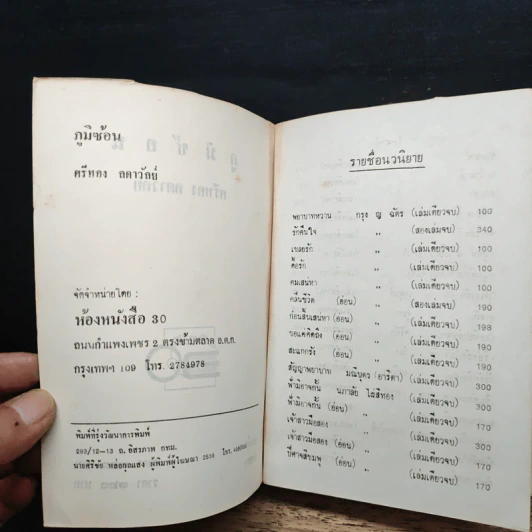 ภูมิซ้อน
ศรีทอง ลดาวัลย์
จัดจำหน่ายโดย :
ห้องหนังสือ 30
ถนนกำแพงเพชร 2 ตรงข้ามตลาด อ.ต.ก.
กรุงเทพฯ 109 โทร. 2784978
พิมพ์ที่รุ่งวัฒนาการพิมพ์
293/12-13 ถ. อิสรภาพ กทม.
นายศิริชัย หล่อกุณแสง ผู้พิมพ์ผู้โฆษณา โทร.
รายชื่อนวนิยาย
พยาบาทหวาน กรุง ญ ฉัตร (เล่มเดียวจบ) 100
รักคืนใจ ,, (สองเล่มจบ) 340
เชลยรัก ,, (เล่มเดียวจบ) 100
ดื้อรัก ,, (เล่มเดียวจบ) 100
คมเสน่หา ,, (เล่มเดียวจบ) 100
คลื่นชีวิต (อ่อน) ,, (สองเล่มจบ) 190
ก่อนสิ้นเสน่หา (อ่อน) ,, (เล่มเดียวจบ) 198
ขอแค่คิดถึง (อ่อน) ,, (เล่มเดียวจบ) 190
สะแกกรัง (อ่อน) ,, (เล่มเดียวจบ) 190
สัญญาพยาบาท มณีบุตร (อาริตา) (เล่มเดียวจบ) 300
ฟ้ามิอาจกั้น นภาลัย ไผ่สีทอง (เล่มเดียวจบ) 300
ฟ้ามิอาจกั้น (อ่อน) ,, (เล่มเดียวจบ) 170
เจ้าสาวมือสอง ,, (เล่มเดียวจบ) 300
เจ้าสาวมือสอง (อ่อน) ,, (เล่มเดียวจบ) 170
ปีศาจสิบพบู (อ่อน) ,, (เล่มเดียวจบ) 170